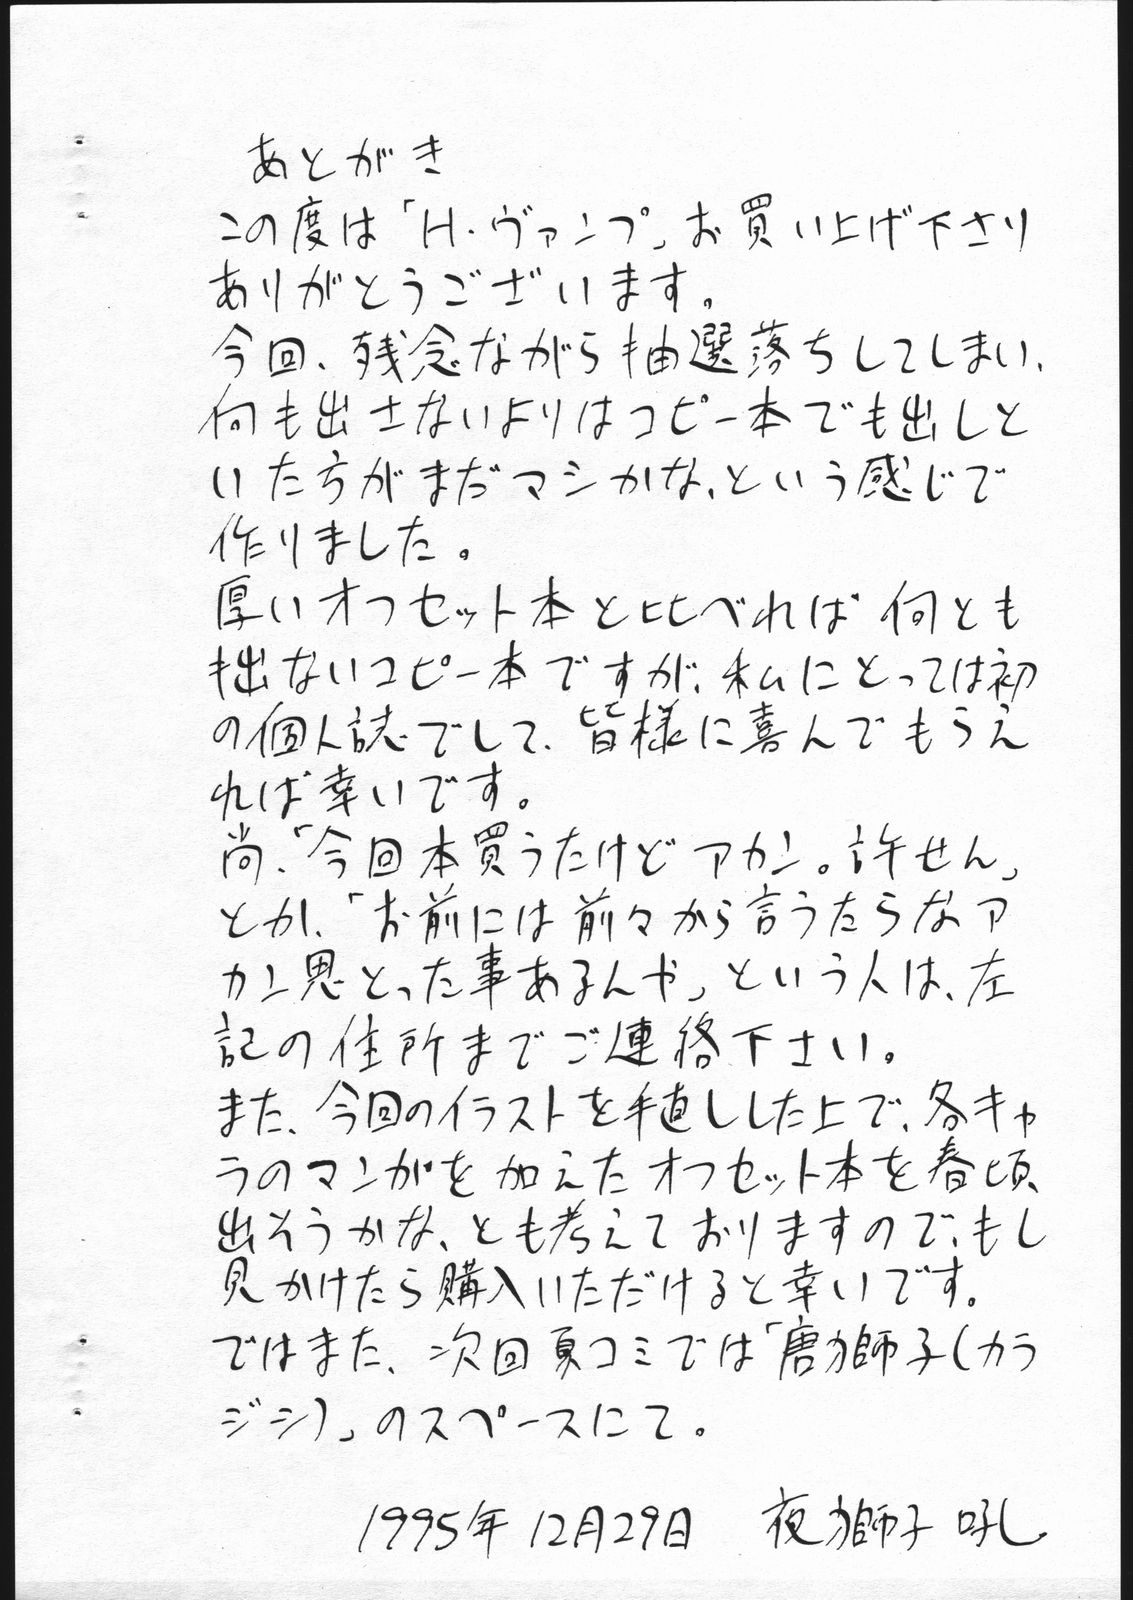 あとがき
この度は「H・ヴァンプ」お買い上げ下さり
ありがとうございます。
今回、残念ながら抽選落ちしてしまい、
何も出さないよりはコピー本でも出しと
いた方がまだマシかな、という感じで
作りました。
厚いオフセット本と比べれば何とも
拙ないコピー本ですが、私にとっては初
の個人誌でして、皆様に喜んでもらえ
れば幸いです。
尚、「今回本買うたけどアカン。許せん」
とか、「お前には前々から言うたらなア
カン思とった事あるんや」という人は、左
記の住所までご連絡下さい。
また、今回のイラストを手直しした上で、各キャ
ラのマンガを加えたオフセット本を春頃、
出そうかな、とも考えておりますので、もし
見かけたら購入いただけると幸いです。
ではまた、次回夏コミでは「唐獅子(カラ
ジシ)」のスペースにて。
1995年12月29日 夜獅子 吼